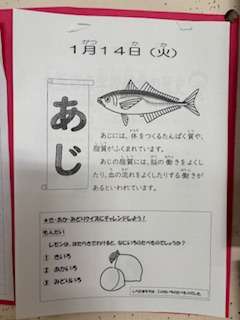 1月14日（火）
がつ か か
あじ
あじには、体をつくるたんぱく質や、
脂質がふくまれています。
あじの脂質には、脳の働きをよくし
たり、血の流れをよくしたりする働きが
あるといわれています。
★き・あか・みどりクイズにチャレンジしよう！
もんだい
レモンは、はたらきでわけると、なにいろのたべものでしょうか？
① きいろ
② あかいろ
③ みどりいろ